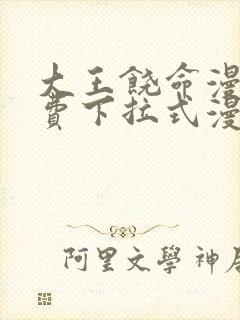 大王饶命漫
费下拉式漫
阿里文學神居